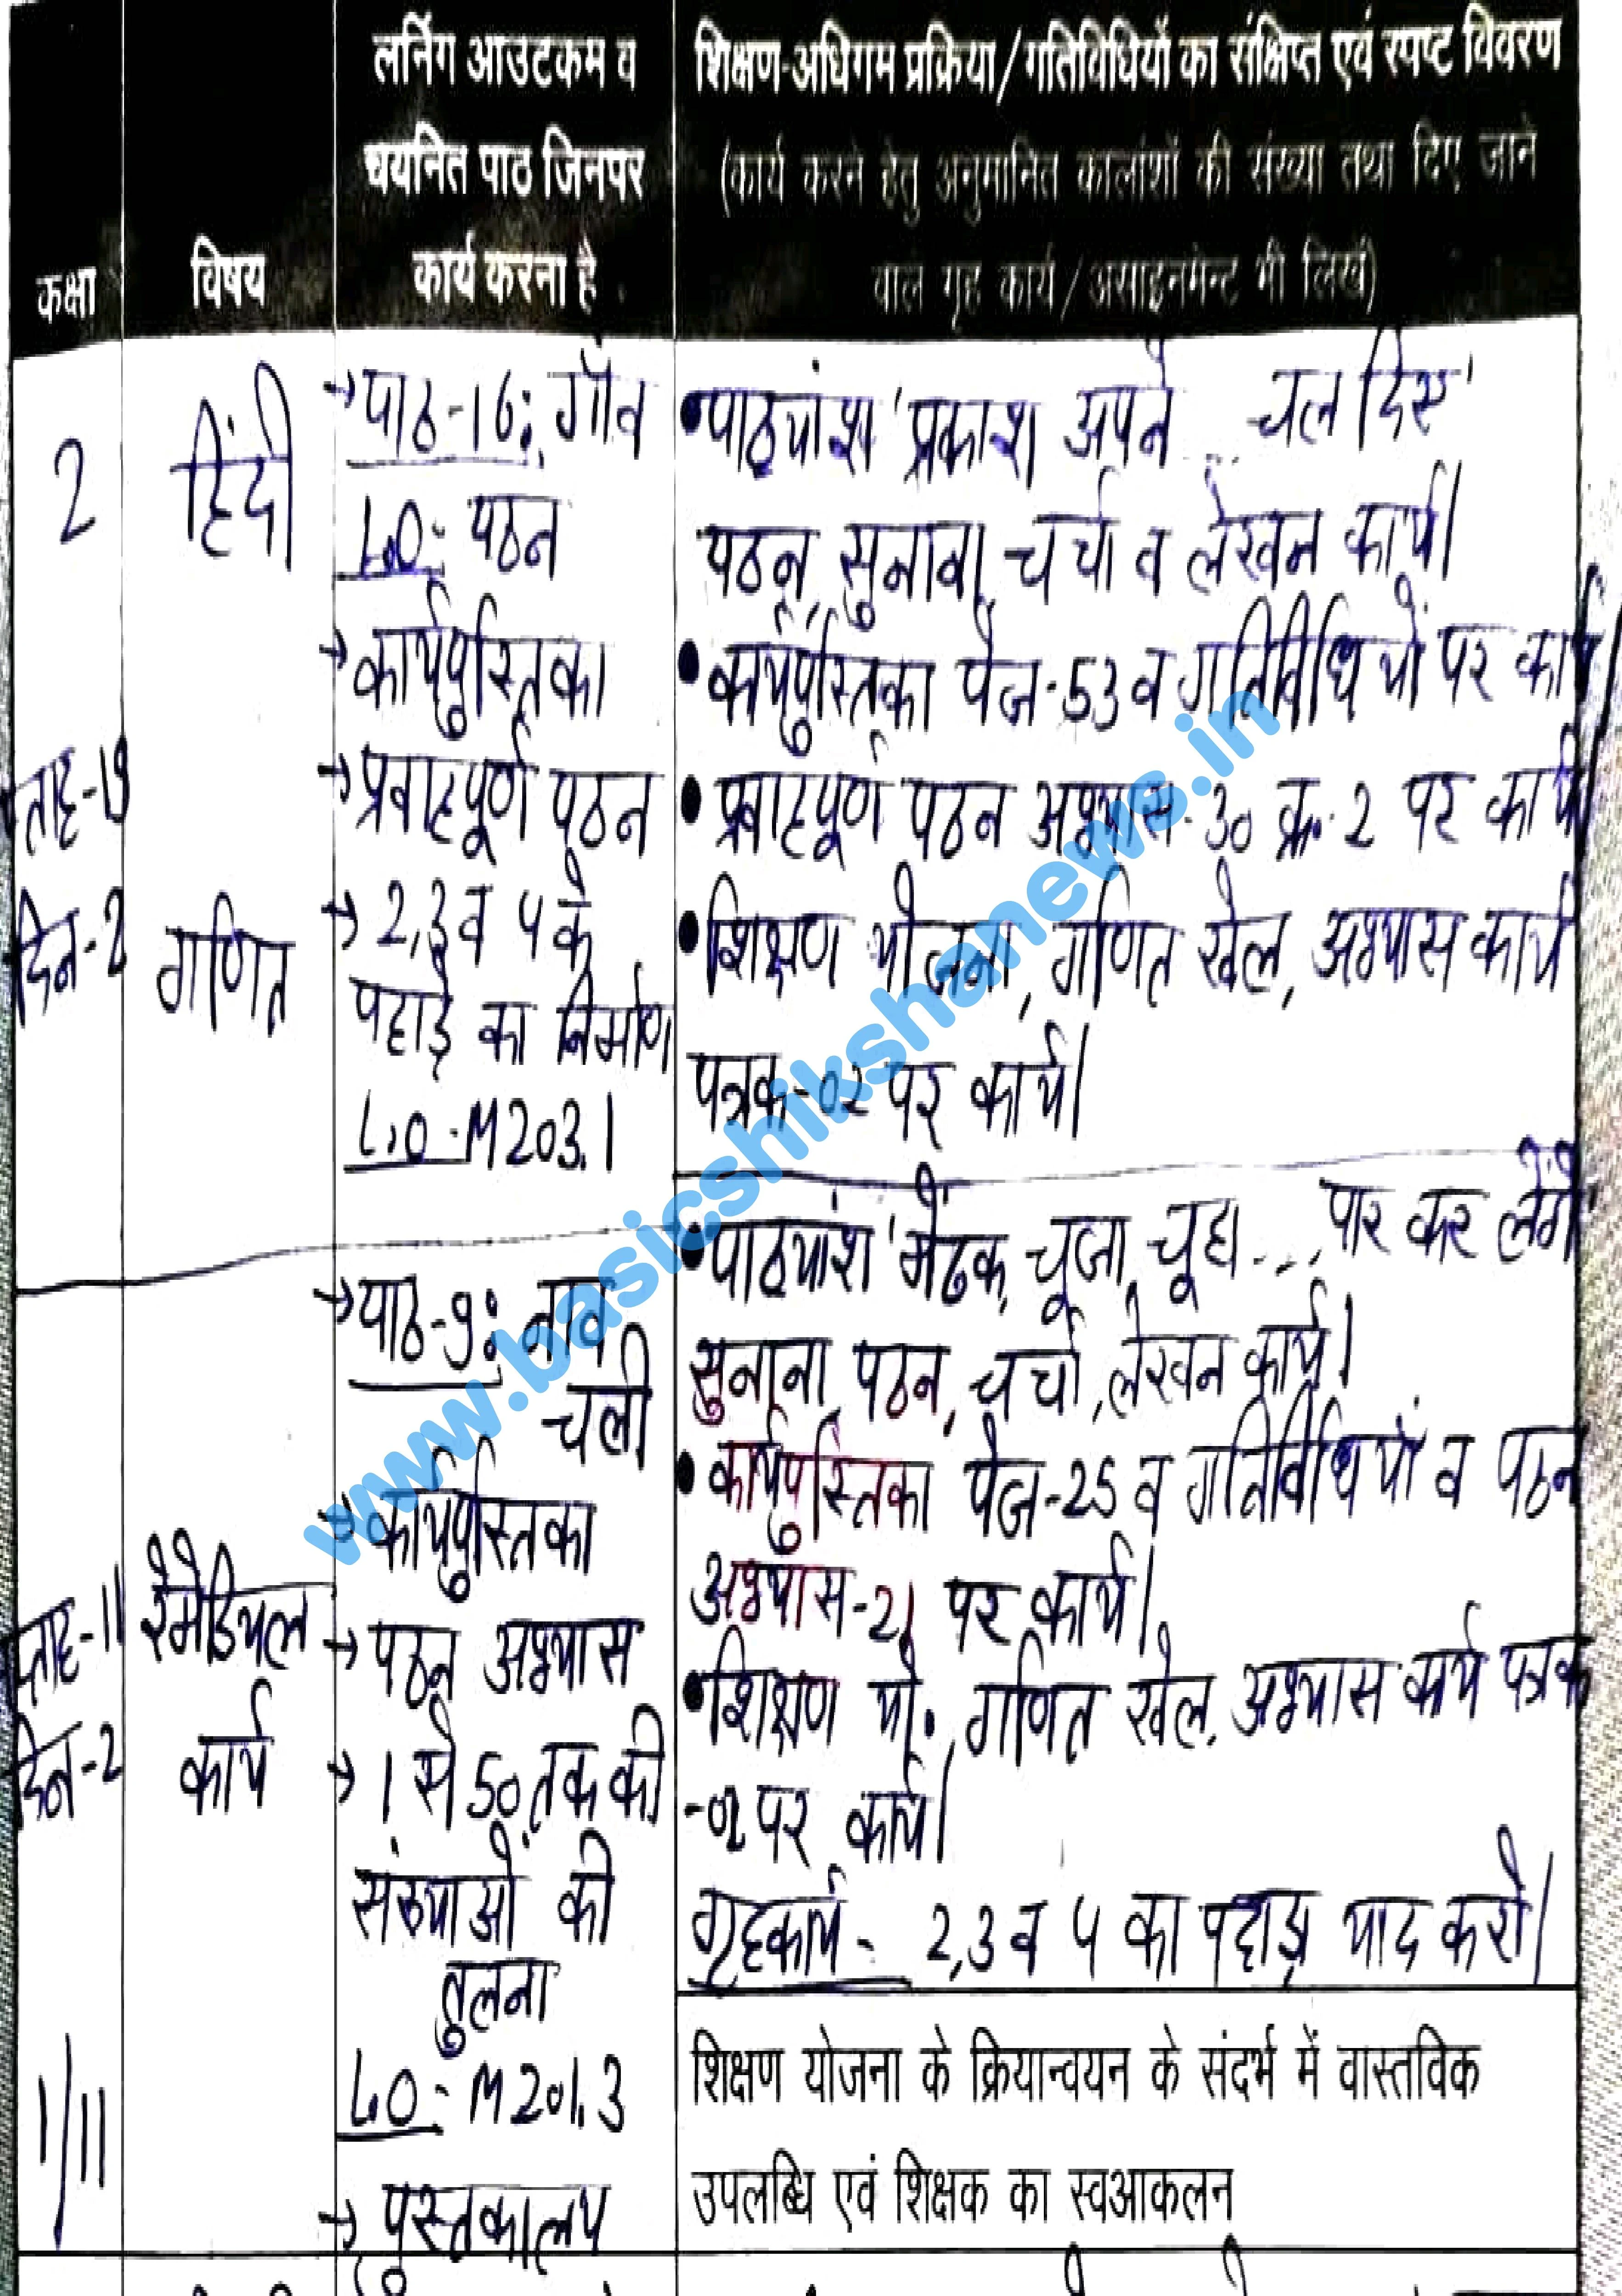 कक्षा
विषय
लर्निंग आउटकम व
चयनित पाठ जिनपर
कार्य करना है
शिक्षण-अधिगम प्रक्रिया/गतिविधियों का संक्षिप्त एवं स्पष्ट विवरण
(कार्य करने हेतु अनुमानित कालांशों की संख्या तथा दिए जाने
वाले गृह कार्य/असाइनमेन्ट भी लिखें)
2
हिंदी
→पाठ-16: गाँव
L.O:- पठन
→कार्यपुस्तिका
→प्रवाहपूर्ण पठन
•पाठ्यांश 'प्रकाश अपने ... चल दिए'
पठन, सुनाना, चर्चा व लेखन कार्य।
•कार्यपुस्तिका पेज-53 व गतिविधियों पर कार्य।
•प्रवाहपूर्ण पठन अभ्यास-30 क्र.-2 पर कार्य।
ताह-19
दिन-2
गणित
→2,3 व 4 के
पहाड़े का निर्माण
L.O-M203.1
•शिक्षण योजना, गणित खेल, अभ्यास कार्य
पत्रक-02 पर कार्य।
→पाठ-9: नाव
चली
→कार्यपुस्तिका
→पठन अभ्यास
→1 से 50 तक की
संख्याओं की
तुलना
L.O:- M201.3
→पुस्तकालय
प्ताह-11
दिन-2
रैमेडियल
कार्य
•पाठ्यांश 'मेंढक, चूजा, चूहा.... पार कर लेंगे'
सुनाना, पठन, चर्चा, लेखन कार्य।
•कार्यपुस्तिका पेज-25 व गतिविधियों व पठन
अभ्यास-21 पर कार्य।
•शिक्षण यो. गणित खेल, अभ्यास कार्य पत्रक
-02 पर कार्य।
गृहकार्य- 2,3 व 4 का पहाड़ा याद करो।
1/11
शिक्षण योजना के क्रियान्वयन के संदर्भ में वास्तविक
उपलब्धि एवं शिक्षक का स्वआकलन
www.basicshikshanews.in